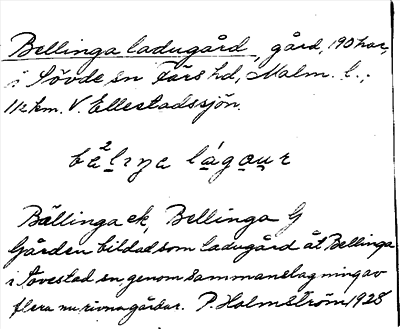 Bellinga ladugård, gård, 190 har,
i Sövde sn Färs hd, Malm. l.;
1½ km. V. Ellestadssjön.
Bällinga ek, Bellinga G
Gården bildad som ladugård åt Bellinga
i Sövestad sn, genom sammanslagning av
flera nu rivna gårdar. P. Holmström, 1928